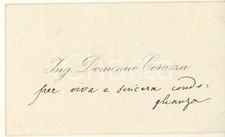 Ing. Domenico Corazza
per viva e sincera condo-
glianza.